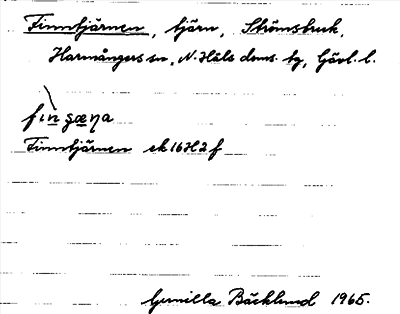 Finntjärnen, tjärn, Strömsbruk,
Harmångers sn, N. Häls doms. tg, Gävl. l.
Finntjärnen ek 16H2f
Gunilla Bäcklund 1965.